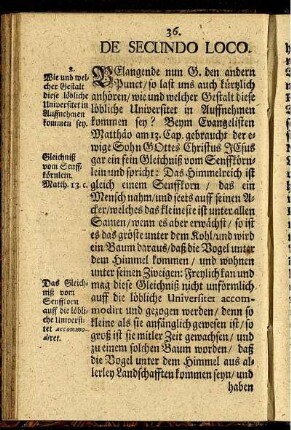 36.
DE SECUNDO LOCO.
2.
Wie und wel-
cher Gestalt
diese löbliche
Universitet in
Auffnehmen
kommen sey.
BElangende nun G. den andern
Punct/ so last uns auch kürtzlich
anhören/ wie und welcher Gestalt diese
löbliche Universitet in Auffnehmen
kommen sey? Beym Evangelisten
Matthäo am 13. Cap. gebraucht der e-
wige Sohn GOttes Christus JEsus
Gleichniß
vom Senff-
körnlein.
Matth. 13. c.
gar ein fein Gleichniß vom Senffkörn-
lein und spricht: Das Himmelreich ist
gleich einem Senffkorn/ das ein
Mensch nahm/ und seets auff seinen A-
cker/ welches das kleineste ist unter allen
Samen/ wenn es aber erwächst/ so ist
es das gröste unter dem Kohl/ und wird
ein Baum daraus/ daß die Vogel unter
dem Himmel kommen/ und wohnen
unter seinen Zweigen: Freylich kan und
Das Gleich-
niß vom
Senffkorn
auff die löb-
liche Universi-
tet accommo-
diret.
mag diese Gleichniß nicht unförmlich
auff die löbliche Universitet accom-
modirt und gezogen werden/ denn so
kleine als sie anfänglich gewesen ist/ so
groß ist sie mitler Zeit gewachsen/ und
zu einem solchen Baum worden/ daß
die Vogel unter dem Himmel aus al-
lerley Landschafften kommen seyn/ und
haben